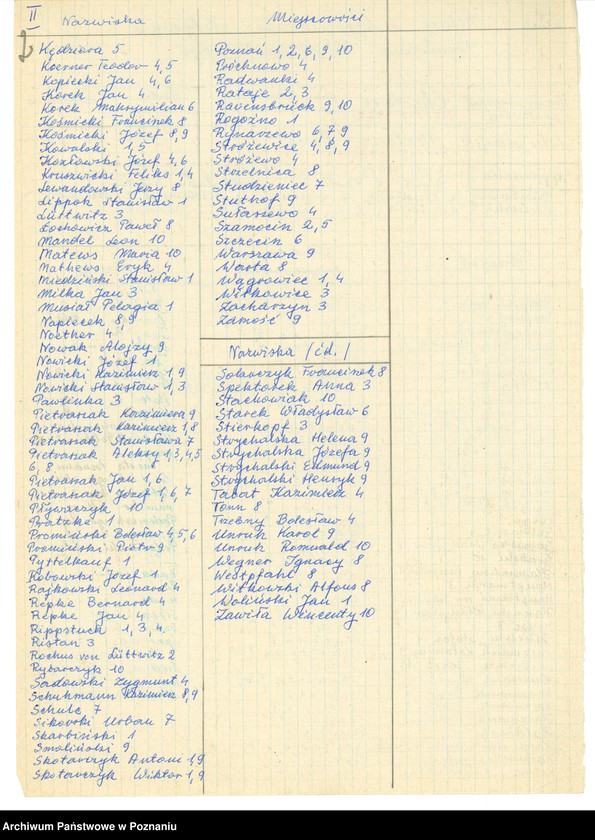 II
Nazwiska
Kędziora 5
Koerner Teodor 4, 5
Kopiecki Jan 4, 6
Korek Jan 4
Korek Maksymilian 6
Kośmicki Franciszek 8
Kośmicki Józef 8, 9
Kowalski 1, 5
Kozłowski Józef 4, 6
Kruszwicki Feliks 1, 4
Lewandowski Jerzy 8
Lippok Stanisław 1
Lüttwitz 3
Łochowicz Paweł 8
Mandel Leon 10
Matews Maria 10
Mathews Eryk 4
Miedziński Stanisław 1
Milka Jan 3
Musiał Pelagia 1
Naplecek 8, 9
Noether 4
Nowak Alojzy 9
Nowicki Józef 1
Nowicki Kazimierz 1, 9
Nowicki Stanisław 1, 3
Pawlinka 3
Pietraszak Kazimiera 9
Pietraszak Kazimierz 1, 8
Pietraszak Stanisława 7
Pietraszak Aleksy 1, 3, 4, 5
6, 8
Pietraszak Jan 1, 6
Pietraszak Józef 1, 6, 7
Pływaczyk 10
Pratzke 1
Promiński Bolesław 4, 5, 6
Promiński Piotr 9
Pyttelkauf 1
Robowski Józef 1
Rajkowski Leonard 4
Repke Bernard 4
Repke Jan 4
Rippstuck 1, 3, 4
Ristan 3
Rochus von Lüttwitz 2
Rybarczyk 10
Sadowski Zygmunt 4
Schuhmann Kazimierz 8, 9
Schulc 7
Sikorski Urban 7
Skarbiński 1
Smoliński 9
Skotarczyk Antoni 1, 9
Skotarczyk Wiktor 1, 9
Miejscowości
Poznań 1, 2, 6, 9, 10
Próchnowo 4
Radwanki 4
Rataje 2, 3
Ravensbrück 9, 10
Rogoźno 1
Rynarzewo 6, 7 9
Stróżewice 4, 8, 9
Stróżewo 4
Strzelnica 8
Studzieniec 7
Stuthof 9
Sułaszewo 4
Szamocin 2, 5
Szczecin 6
Warszawa 9
Warta 8
Wągrowiec 1, 4
Witkowice 3
Zacharzyn 3
Zamość 9
Nazwiska /cd./
Solarczyk Franciszek 8
Spektorek Anna 3
Stachowiak 10
Starek Władysław 6
Stierkopf 3
Strychalska Helena 9
Strychalska Józefa 9
Strychalski Edmund 9
Strychalski Henryk 9
Tabat Kazimierz 4
Tonn 8
Trzebny Bolesław 4
Unruh Karol 9
Unruh Romuald 10
Wegner Ignacy 8
Westpfahl 8
Witkowski Alfons 8
Woliński Jan 1
Zawiła Wincenty 10
Archiwum Państwowe w Poznaniu